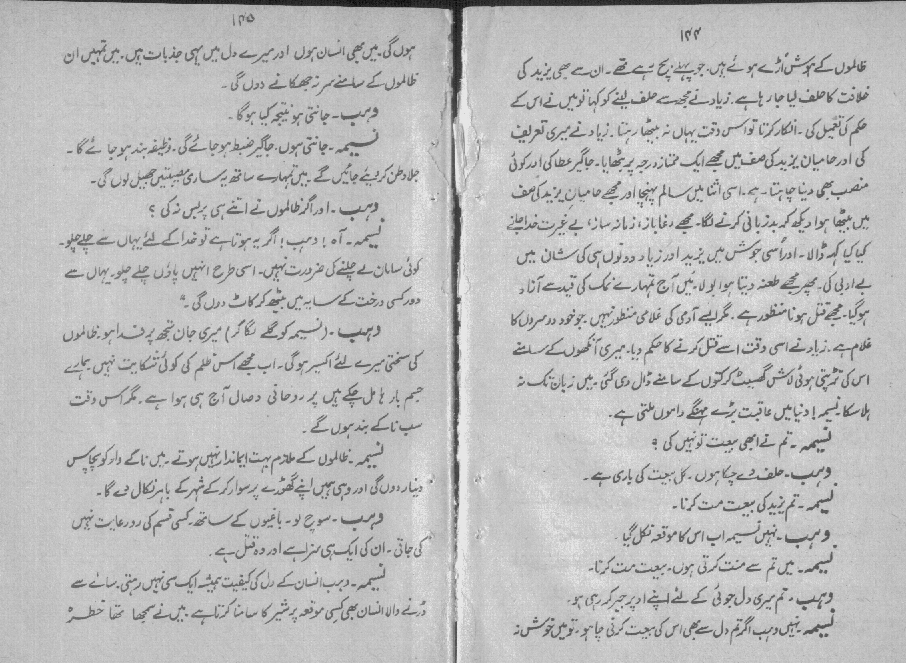 ۱۴۴
ظالموں کے ہوش اُڑے ہوئے ہیں۔ جو پہلے بیچ رہے تھے۔ ان سے بھی یزید کی
خلافت کا حلف لیا جا رہا ہے۔ زیاد نے مجھ سے حلف لینے کو کہا تو میں نے اس کے
حکم کی تعمیل کی۔ انکار کرتا تو اس وقت یہاں نہ بیٹھا رہتا۔ زیاد نے میری تعریف
کی اور حامیان یزید کی صف میں مجھے ایک ممتاز درجہ پر بٹھایا۔ جاگیر عطا کی اور کوئی
منصب بھی دینا چاہتا ہے۔ اسی اثنا میں سالم پہنچا اور مجھے حامیان یزید کی صف
میں بیٹھا ہوا دیکھ کر بدزبانی کرنے لگا۔ مجھے دغاباز، زمانہ ساز، بے غیرت خدا جانے
کیا کیا کہہ ڈالا۔ اور اُسی جوش میں یزید اور زیاد دونوں ہی کی شان میں
بے ادبی کی۔ پھر مجھے طعنہ دیتا ہوا بولا۔ میں آج تمہارے نمک کی قید سے آزاد
ہوگیا۔ مجھے قتل ہونا منظور ہے۔ مگر ایسے آدمی کی غلامی منظور نہیں جو خود دوسروں کا
غلام ہے۔ زیاد نے اسی وقت اسے قتل کرنے کا حکم دیا۔ میری آنکھوں کے سامنے
اس کی تڑپتی ہوئی لاش گھسیٹ کر کتوں کے سامنے ڈال دی گئی۔ میں زبان تک نہ
ہلا سکا نسیمہ! دنیا میں عاقبت بڑے مہنگے داموں ملتی ہے۔
نسیمہ۔ تم نے ابھی بیعت تو نہیں کی؟
وہب۔ حلف دے چکا ہوں۔ کل بیعت کی باری ہے۔
نسیمہ۔ تم یزید کی بیعت مت کرنا۔
وہب۔ نہیں نسیمہ اب اس کا موقعہ نکل گیا۔
نسیمہ۔ میں تم سے منت کرتی ہوں۔ بیعت مت کرنا۔
وہب۔ تم میری دل جوئی کے لئے اپنے اوپر جبر کر رہی ہو۔
نسیمہ۔ نہیں وہب اگر تم دل سے بھی اس کی بیعت کرنی چاہو۔ تو میں خوش نہ
۱۴۵
ہوں گی۔ میں بھی انسان ہوں اور میرے دل میں یہی جذبات ہیں۔ میں تمہیں ان
ظالموں کے سامنے سر نہ جھکانے دوں گی۔
وہب۔ جانتی ہو نتیجہ کیا ہوگا۔
نسیمہ۔ جانتی ہوں۔ جاگیر ضبط ہو جائے گی۔ وظیفہ بند ہو جائے گا۔
جلا وطن کر دیئے جائیں گے۔ میں تمہارے ساتھ یہ ساری مصیبتیں جھیل لوں گی۔
وہب۔ اور اگر ظالموں نے اتنے ہی پر بس نہ کی؟
نسیمہ۔ آہ! وہب! اگر یہ ہوتا ہے تو خدا کے لئے یہاں سے چلے چلو۔
کوئی سامان لے چلنے کی ضرورت نہیں۔ اسی طرح انہیں پاؤں چلے چلو۔ یہاں سے
دور کسی درخت کے سایہ میں بیٹھ کر کاٹ دوں گی۔
وہب۔ (نسیمہ کو گلے لگا کر) میری جان تجھ پر فدا ہو۔ ظالموں
کی سختی میرے لئے اکسیر ہوگی۔ اب مجھے اس ظلم کی کوئی شکایت نہیں۔ ہمارے
جسم بارہا مل چکے ہیں پر روحانی وصال آج ہی ہوا ہے۔ مگر اس وقت
سب ناکے بند ہوں گے۔
نسیمہ۔ ظالموں کے ملازم بہت ایماندار نہیں ہوتے۔ میں ناکے دار کو پچاس
دینار دوں گی اور وہی ہمیں اپنے گھوڑے پر سوار کر کے شہر کے باہر نکال دے گا۔
وہب۔ سوچ لو۔ باغیوں کے ساتھ کسی قسم کی رو رعایت نہیں
کی جاتی۔ ان کی ایک ہی سزا ہے اور وہ قتل ہے۔
نسیمہ۔ وہب انسان کے دل کی کیفیت ہمیشہ ایک سی نہیں رہتی۔ سائے سے
ڈرنے والا انسان بھی کسی موقعہ پر شیر کا سامنا کرتا ہے۔ میں نے سمجھا تھا خطرہ